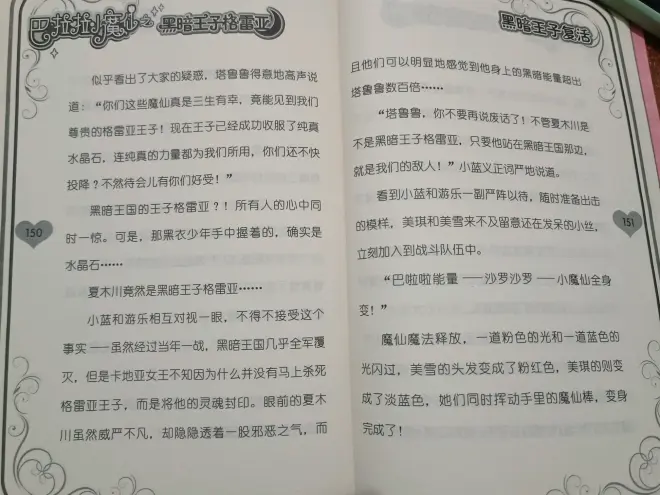 巴啦啦小魔仙之黑暗王子格雷亚
似乎看出了大家的疑惑，塔鲁鲁得意地高声说
道：“你们这些魔仙真是三生有幸，竟能见到我们
尊贵的格雷亚王子！现在王子已经成功收服了纯真
水晶石，连纯真的力量都为我们所用，你们还不快
投降？不然待会儿有你们好受！”
黑暗王国的王子格雷亚？！所有人的心中同
时一惊。可是，那黑衣少年手中握着的，确实是
水晶石……
夏木川竟然是黑暗王子格雷亚……
小蓝和游乐相互对视一眼，不得不接受这个
事实——虽然经过当年一战，黑暗王国几乎全军覆
灭，但是卡地亚女王不知因为什么并没有马上杀死
格雷亚王子，而是将他的灵魂封印。眼前的夏木
川虽然威严不凡，却隐隐透着一股邪恶之气，而
150
黑暗王子复活
且他们可以明显地感觉到他身上的黑暗能量超出
塔鲁鲁数百倍……
“塔鲁鲁，你不要再说废话了！不管夏木川是
不是黑暗王子格雷亚，只要他站在黑暗王国那边，
就是我们的敌人！”小蓝义正词严地说道。
看到小蓝和游乐一副严阵以待，随时准备出击
的模样，美琪和美雪来不及留意还在发呆的小丝，
立刻加入到战斗队伍中。
“巴啦啦能量——沙罗沙罗——小魔仙全身
变！”
魔仙魔法释放，一道粉色的光和一道蓝色的
光闪过，美雪的头发变成了粉红色，美琪的则变
成了淡蓝色，她们同时挥动手里的魔仙棒，变身
完成了！
151